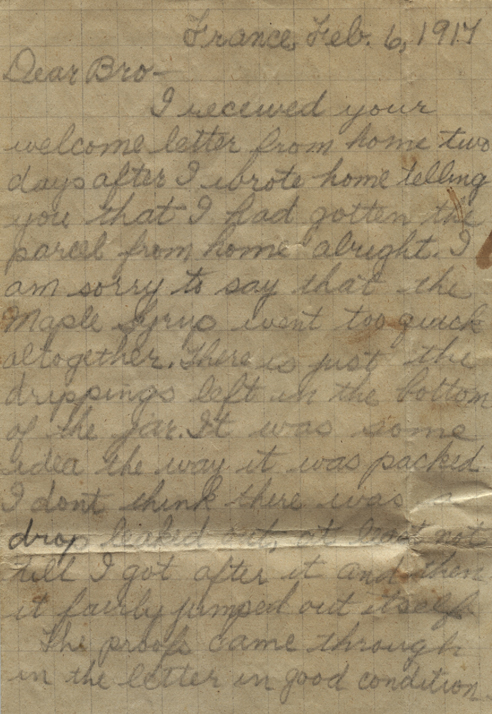 France, Feb. 6, 1917
Dear Bro-
I received your
welcome letter from home two
days after I wrote home telling
you that I had gotten the
parcel from home alright. I
am sorry to say that the
Maple Syrup went too quick
altogether. There is just the
drippings left in the bottom
of the jar. It was some
idea the way it was packed
I dont think there was a
drop leaked out, at least not
till I got after it and then
it fairly jumped out itself.
The proofs came through
in the letter in good condition.